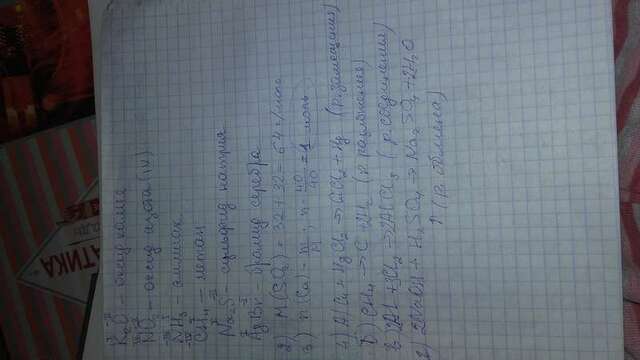 АТИКА
I -II
K₂O - оксид калия
IV -II
NO₂ - оксид азота (IV)
-III I
NH₃ - аммиак
-IV I
CH₄ - метан
I -II
Na₂S - сульфид натрия
I -I
AgBr - бромид серебра
2) M(SO₂) = 32 + 32 = 64 г/моль
3) n(Ca) = m/M; n = 40/40 = 1 моль
+ HgCl₂ → CuCl₂ + Hg (р. замещения)
б) CH₄ → C + 2H₂ (р. разложения)
в) 2Al + 3Cl₂ → 2AlCl₃ (р. соединения)
г) 2NaOH + H₂SO₄ → Na₂SO₄ + 2H₂O
(р. обмена)